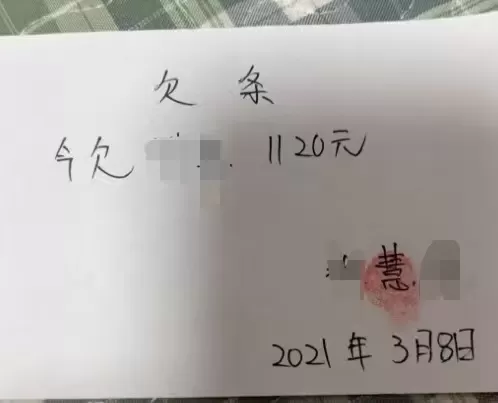 欠条
今欠 1120元
慧
2021年3月8日